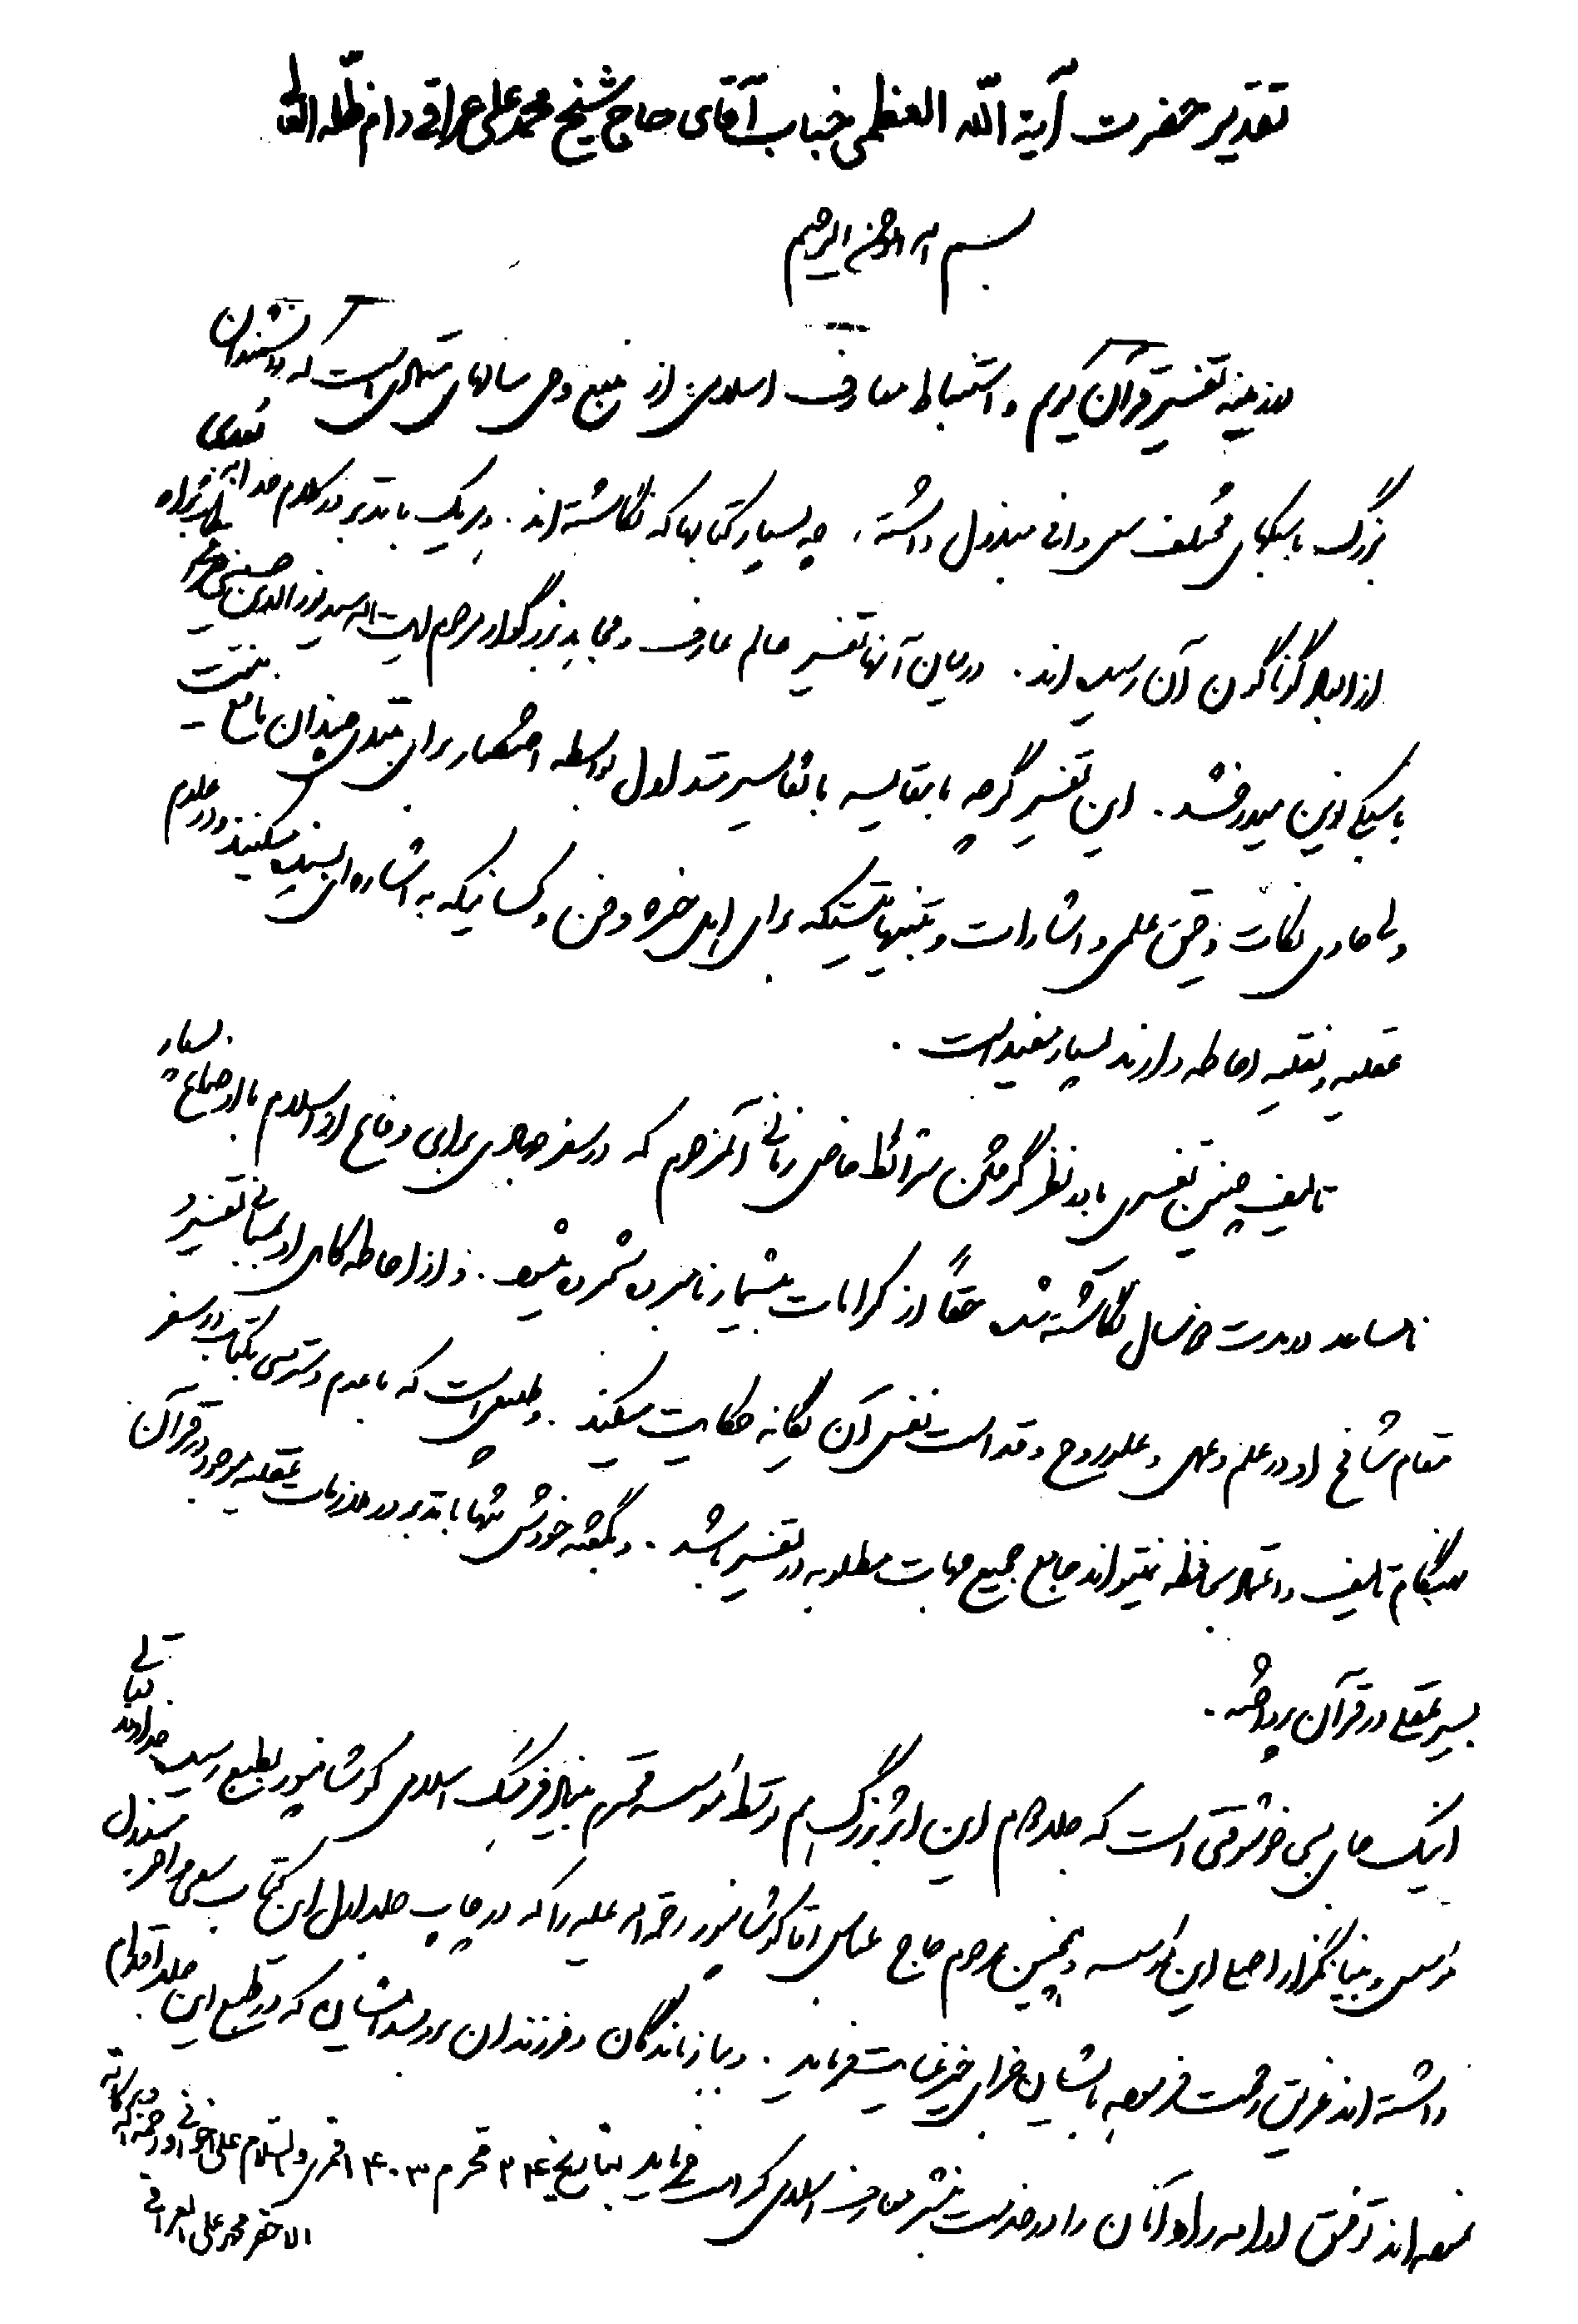 تقدیر حضرت آیة اللّه العظمی جناب آقای حاج شیخ محمد علی عراقی دام ظلّه العالی
بسم الله الرحمن الرحیم
در زمینه تفسیر قرآن کریم و استنباط معارف اسلامی از منبع وحی سالهای متمادی است که دانشمندان
بزرگ با سبکهای مختلف سعی وافی مبذول داشته، چه بسیار کتابها که نگاشته‌اند. و هریک با تدبر در کلام خدا به
از ابعاد گوناگون آن رسیده‌اند. در میان آنها تفسیر عالم عارف و مجاهد بزرگوار مرحوم آیت الله سید نورالدین حسینی
با سبکی نوین میدرخشد. این تفسیر گرچه با مقایسه با تفاسیر متداول بواسطه اختصار برای مبتدی چندان نافع نیست
ولی حاوی نکات دقیق علمی و اشارات و تنبیهاتیستکه برای اهل خبره و فن و کسانیکه به اشاره‌ای بسنده میکنند و در علوم
عقلیه و نقلیه احاطه دارند بسیار مفید است.
تالیف چنین تفسیری با در نظر گرفتن شرائط خاص زمانی آنمرحوم که در سفر جهادی برای دفاع از اسلام با اوضاع بسیار
نامساعد در مدت دو سال نگاشته شده حقاً از کرامات بیشمار نامبرده شمرده میشود. و از احاطه کامل او بمبانی تفسیر و
مقام شامخ او در علم و عمل و علو روح و قداست نفس آن یگانه حکایت میکند. و طبیعی است که با عدم دسترسی بکتاب در سفر
هنگام تالیف و اعتماد بحافظه نمیتواند جامع جمیع جهات مطلوبه در تفسیر باشد. و بگفته خودش تنها با تدبر در ملازمات عقلیه موجود در قرآن
بسیر عقلی در قرآن پرداخته.
اینک جای بسی خوشوقتی است که جلد دوم این اثر بزرگ هم توسط مؤسسه محترم بنیاد فرهنگ اسلامی کوشانپور بطبع رسیده خداوند تبارک و تعالی
مؤسس و بنیانگزار اصلی این مؤسسه و همچنین مرحوم حاج عباس آقا کوشانپور رحمة الله علیه را که در چاپ جلد اول این کتاب سعی وافر مبذول
داشته‌اند غریق رحمت فرموده بایشان جزای خیر عنایت فرماید. و ببازماندگان و فرزندان برومند ایشان که در طبع این جلد اقدام
نموده‌اند توفیق ادامه راه آنان را در خدمت بنشر معارف اسلامی کرامت فرماید بتاریخ ۲۴ محرم ۱۴۰۳ قمری والسلام علی اخوانی و رحمة الله و برکاته
الاحقر محمد علی العراقی